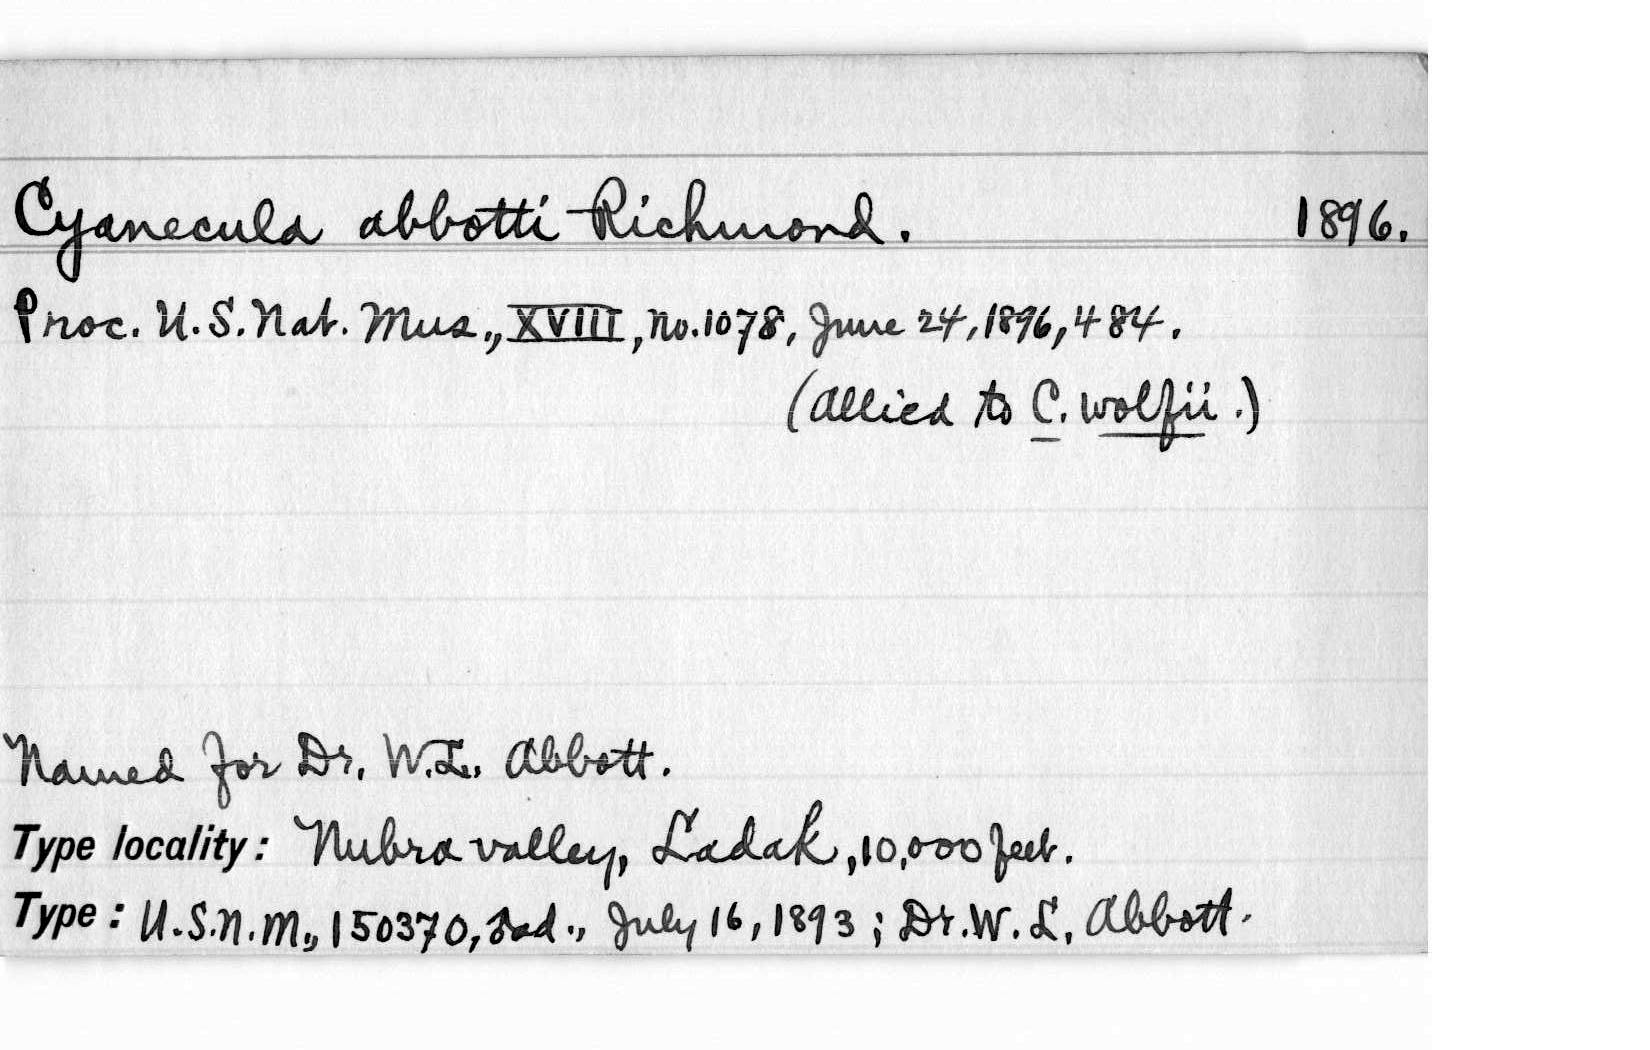 Cyanecula abbotti Richmond. 1896.
Proc. U.S. Nat. Mus., XVIII, no. 1078, June 24, 1896, 484.
(Allied to C. wolfii.)
Named for Dr. W.L. Abbott.
Type locality: Nubra valley, Ladak, 10,000 feet.
Type: U.S.N.M., 150370, ♂ad., July 16, 1893; Dr. W. L. Abbott.